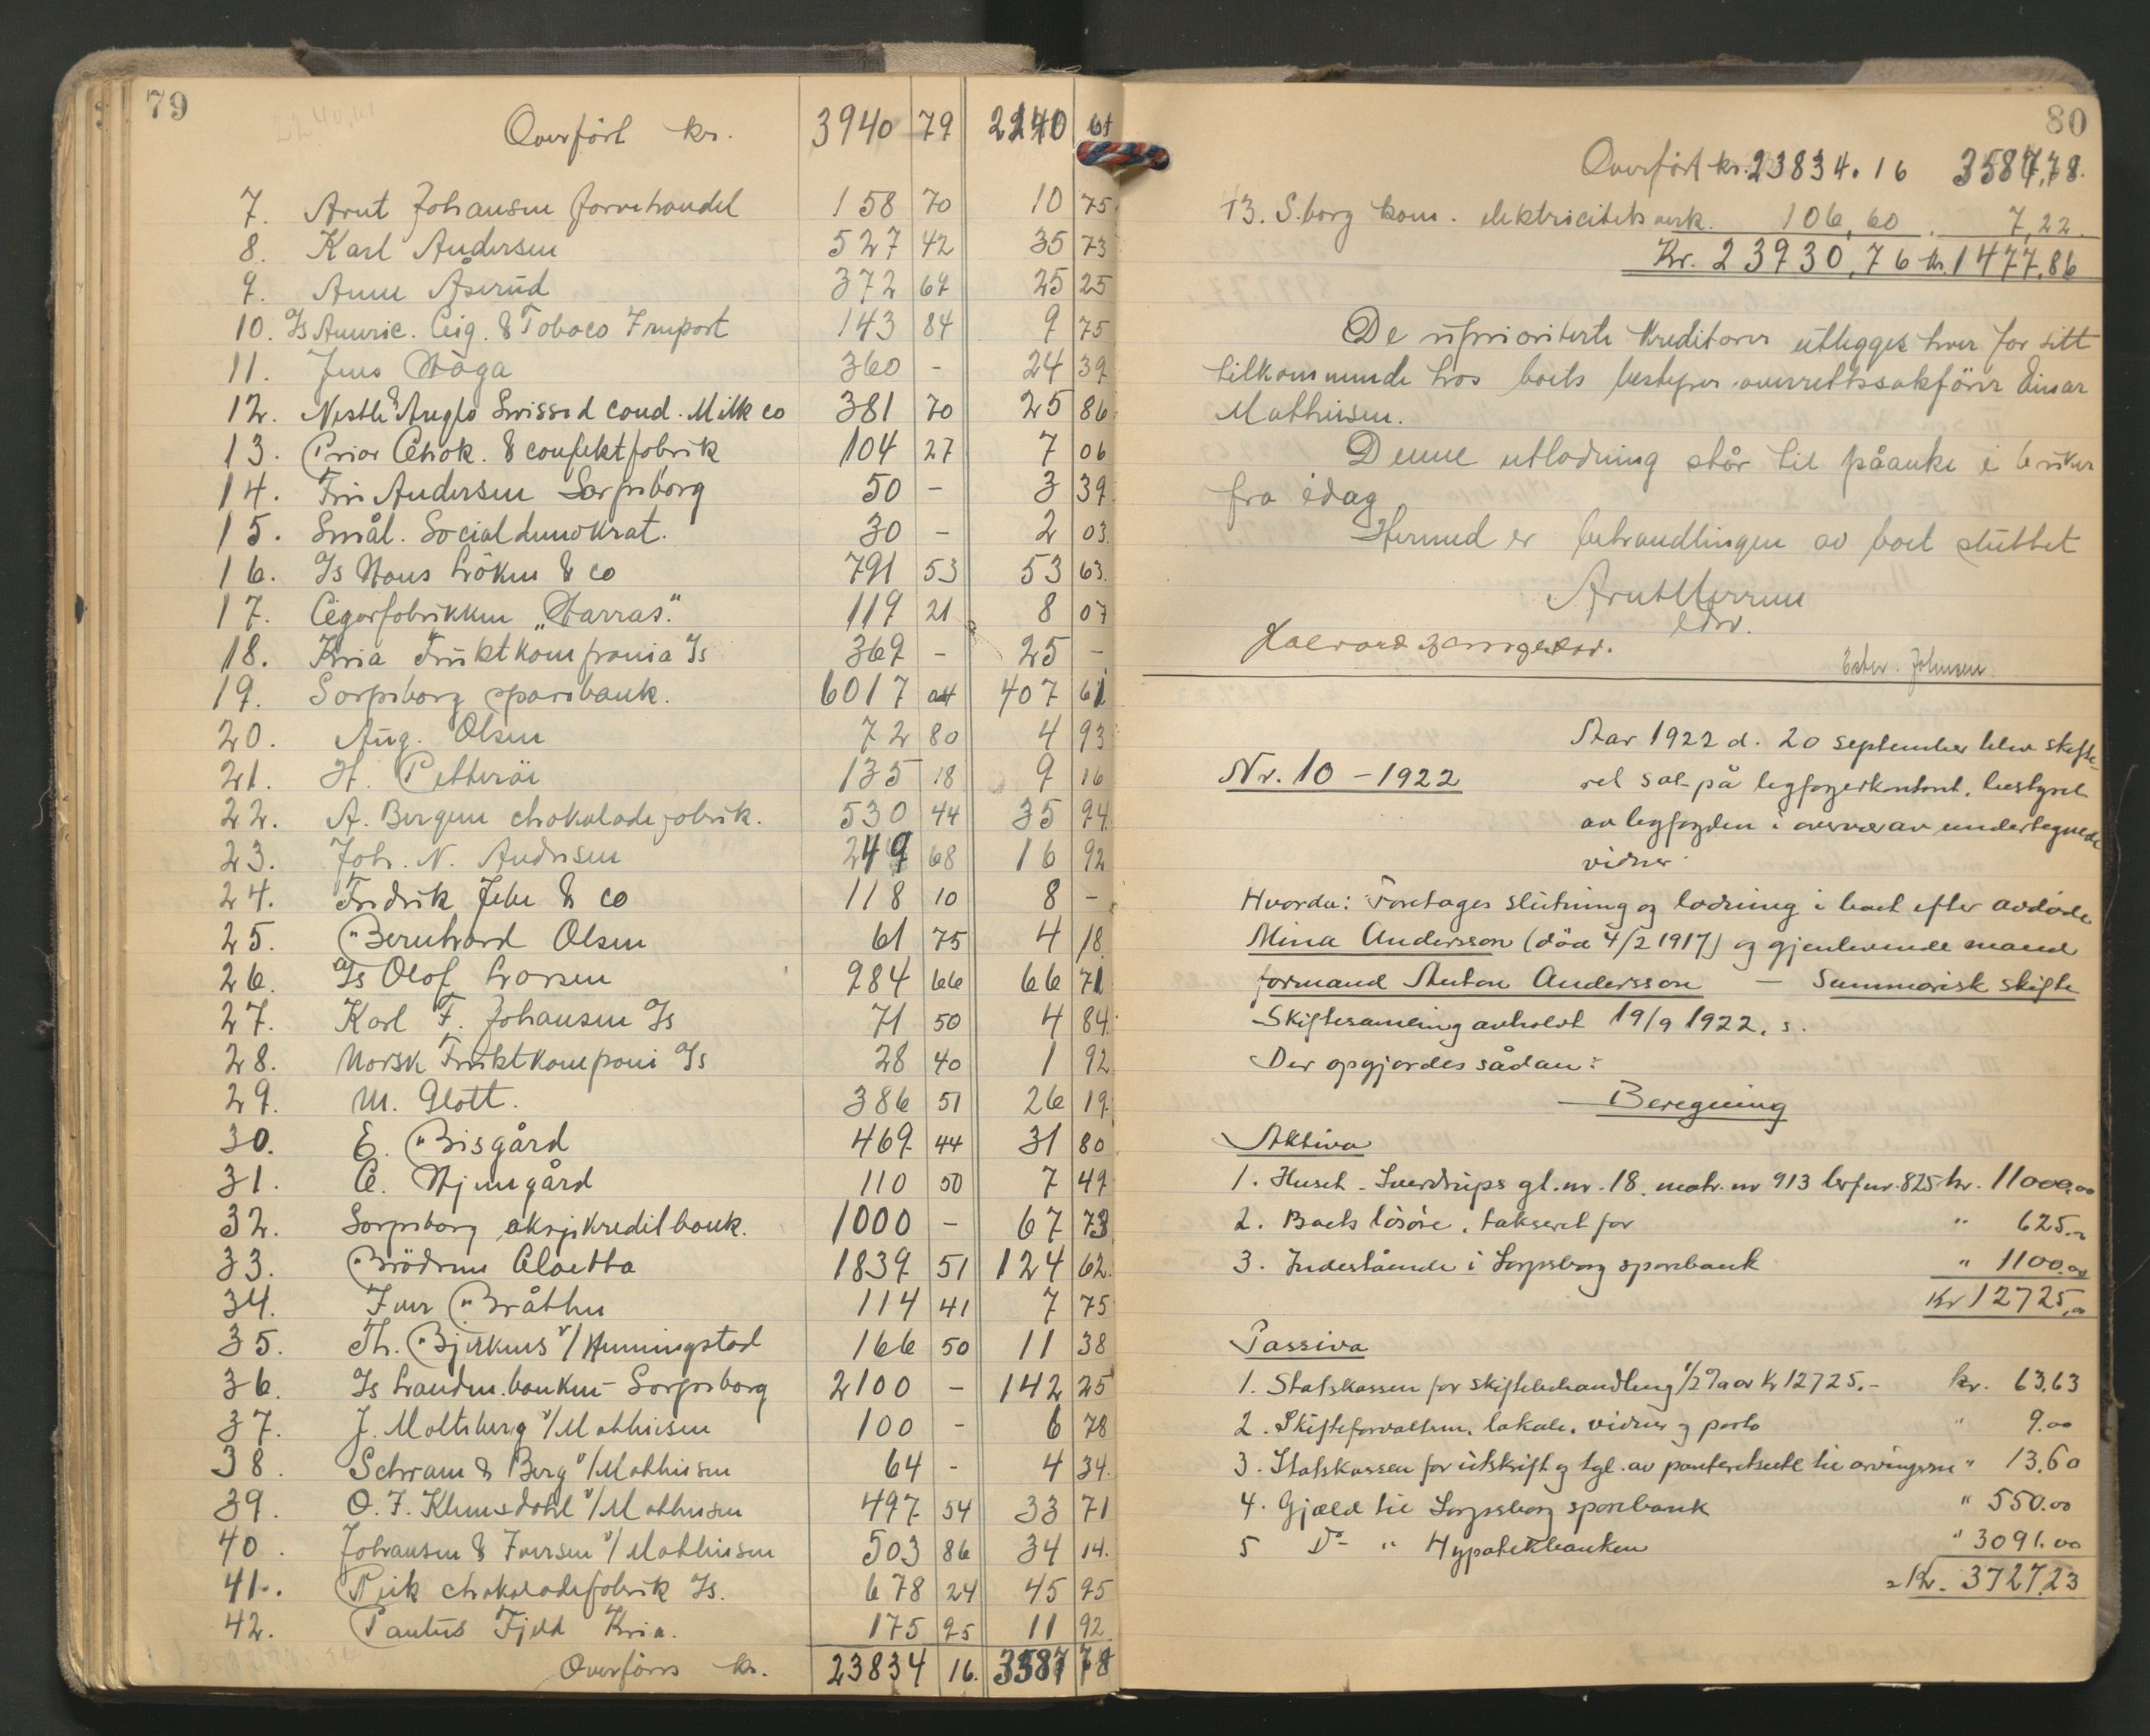 79
Overført kr. 3940 79 2240 61
7. Arnt Johansen farvehandel 158 70 10 75
8. Karl Andersen 527 42 35 73
9. Anne Åserud 372 69 25 25
10. As Americ. Cig. & Tobaco Import 143 84 9 75
11. Jens Haga 360 - 24 39
12. Nestle & Anglo Swissed Cond. Milk co 381 70 25 86
13. Prior Chok. & confektfabrik 104 27 7 06
14. Fru Andersen Sarpsborg 50 - 3 39
15. Smål. Socialdemokrat. 30 - 2 03
16. As Hans Løken & co 791 53 53 63
17. Cigarfabrikken „Harras“ 119 21 8 07
18. Kria Fruktkompania As 369 - 25 -
19. Sarpsborg sparebank. 6017 407 61
20. Aug. Olsen 72 80 4 93
21. H. Petterøe 135 18 9 16
22. A. Bergene chokoladefabrik. 530 44 35 94
23. Joh. N. Andresen 249 68 16 92
24. Fredrik Jebe & co 118 10 8 -
25. Bernhard Olsen 61 75 4 18
26. As Olof Larsen 984 66 66 71
27. Karl F. Johansen As 71 50 4 84
28. Norsk Fruktkompani As 28 40 1 92
29. M. Glott. 386 51 26 19
30. E. Bisgård 469 44 31 80
31. C. Hjemgård 110 50 7 49
32. Sarpsborg aksjekreditbank. 1000 - 67 73
33. Brødrene Cloetta 1839 51 124 62
34. Iver Bråthen 114 41 7 75
35. Th. Bjerknes v/ Henningstad 166 50 11 38
36. As Landm.banken - Sarpsborg 2100 - 142 25
37. J. Moltzberg v/ Mathiesen 100 - 6 78
38. Schram & Berg v/ Mathiesen 64 - 4 34
39. O. F. Klemsdahl v/ Mathiesen 497 54 33 71
40. Johansen & Iversen v/ Mathiesen 503 86 34 14
41. Peik chokoladefabrik As. 678 24 45 95
42. Pantus Fjeld Kria. 175 95 11 92
Overføres kr. 23834 16. 3587 78
80
Overført kr. 23834.16 3587,78.
43. S.borg kom. elektricitetsverk. 106,60. 7,22.
Kr. 23930,76 kr. 1477,86
De uprioriterte kreditorer utlegges hver for sitt
tilkommende hos boets bestyrer overrettssakfører Einar
Mathiesen.
Denne utlodning står til påanke i 6 uker
fra idag
Hermed er behandlingen av boet sluttet
Ester Johnsen.
Nr. 10 - 1922
Aar 1922 d. 20 september blev skifte-
ret sat på byfogedkontoret, bestyret
av byfogden i overvær av undertegnede
vidner.
Hvorda: Foretages slutning og lodning i boet efter avdøde
Mina Andersson (død 4/2 1917) og gjenlevende mand
formand Anton Andersson - Summarisk skifte
Skiftesamling avholdt 19/9 1922.
Der opgjordes sådan:
Beregning
Aktiva
1. Huset Sverdrups gt. nr. 18. matr. nr 913 brfnr. 825 kr. 11000,00
2. Boets løsøre, takseret for " 625.-
3. Indestående i Sarpsborg sparebank " 1100.00
Kr 12725,00
Passiva
1. Statskassen for skiftebehandling 1/2 % av kr 12725.- kr. 63.63
2. Skifteforvalteren, lokale, vidner og porto " 9.00
3. Statskassen for utskrift og tgl. av panteretsutl til arvingerne " 13.60
4. Gjæld til Sarpsborg sparebank " 550.00
5 Do " Hypotekbanken " 3091.00
= Kr. 3727.23